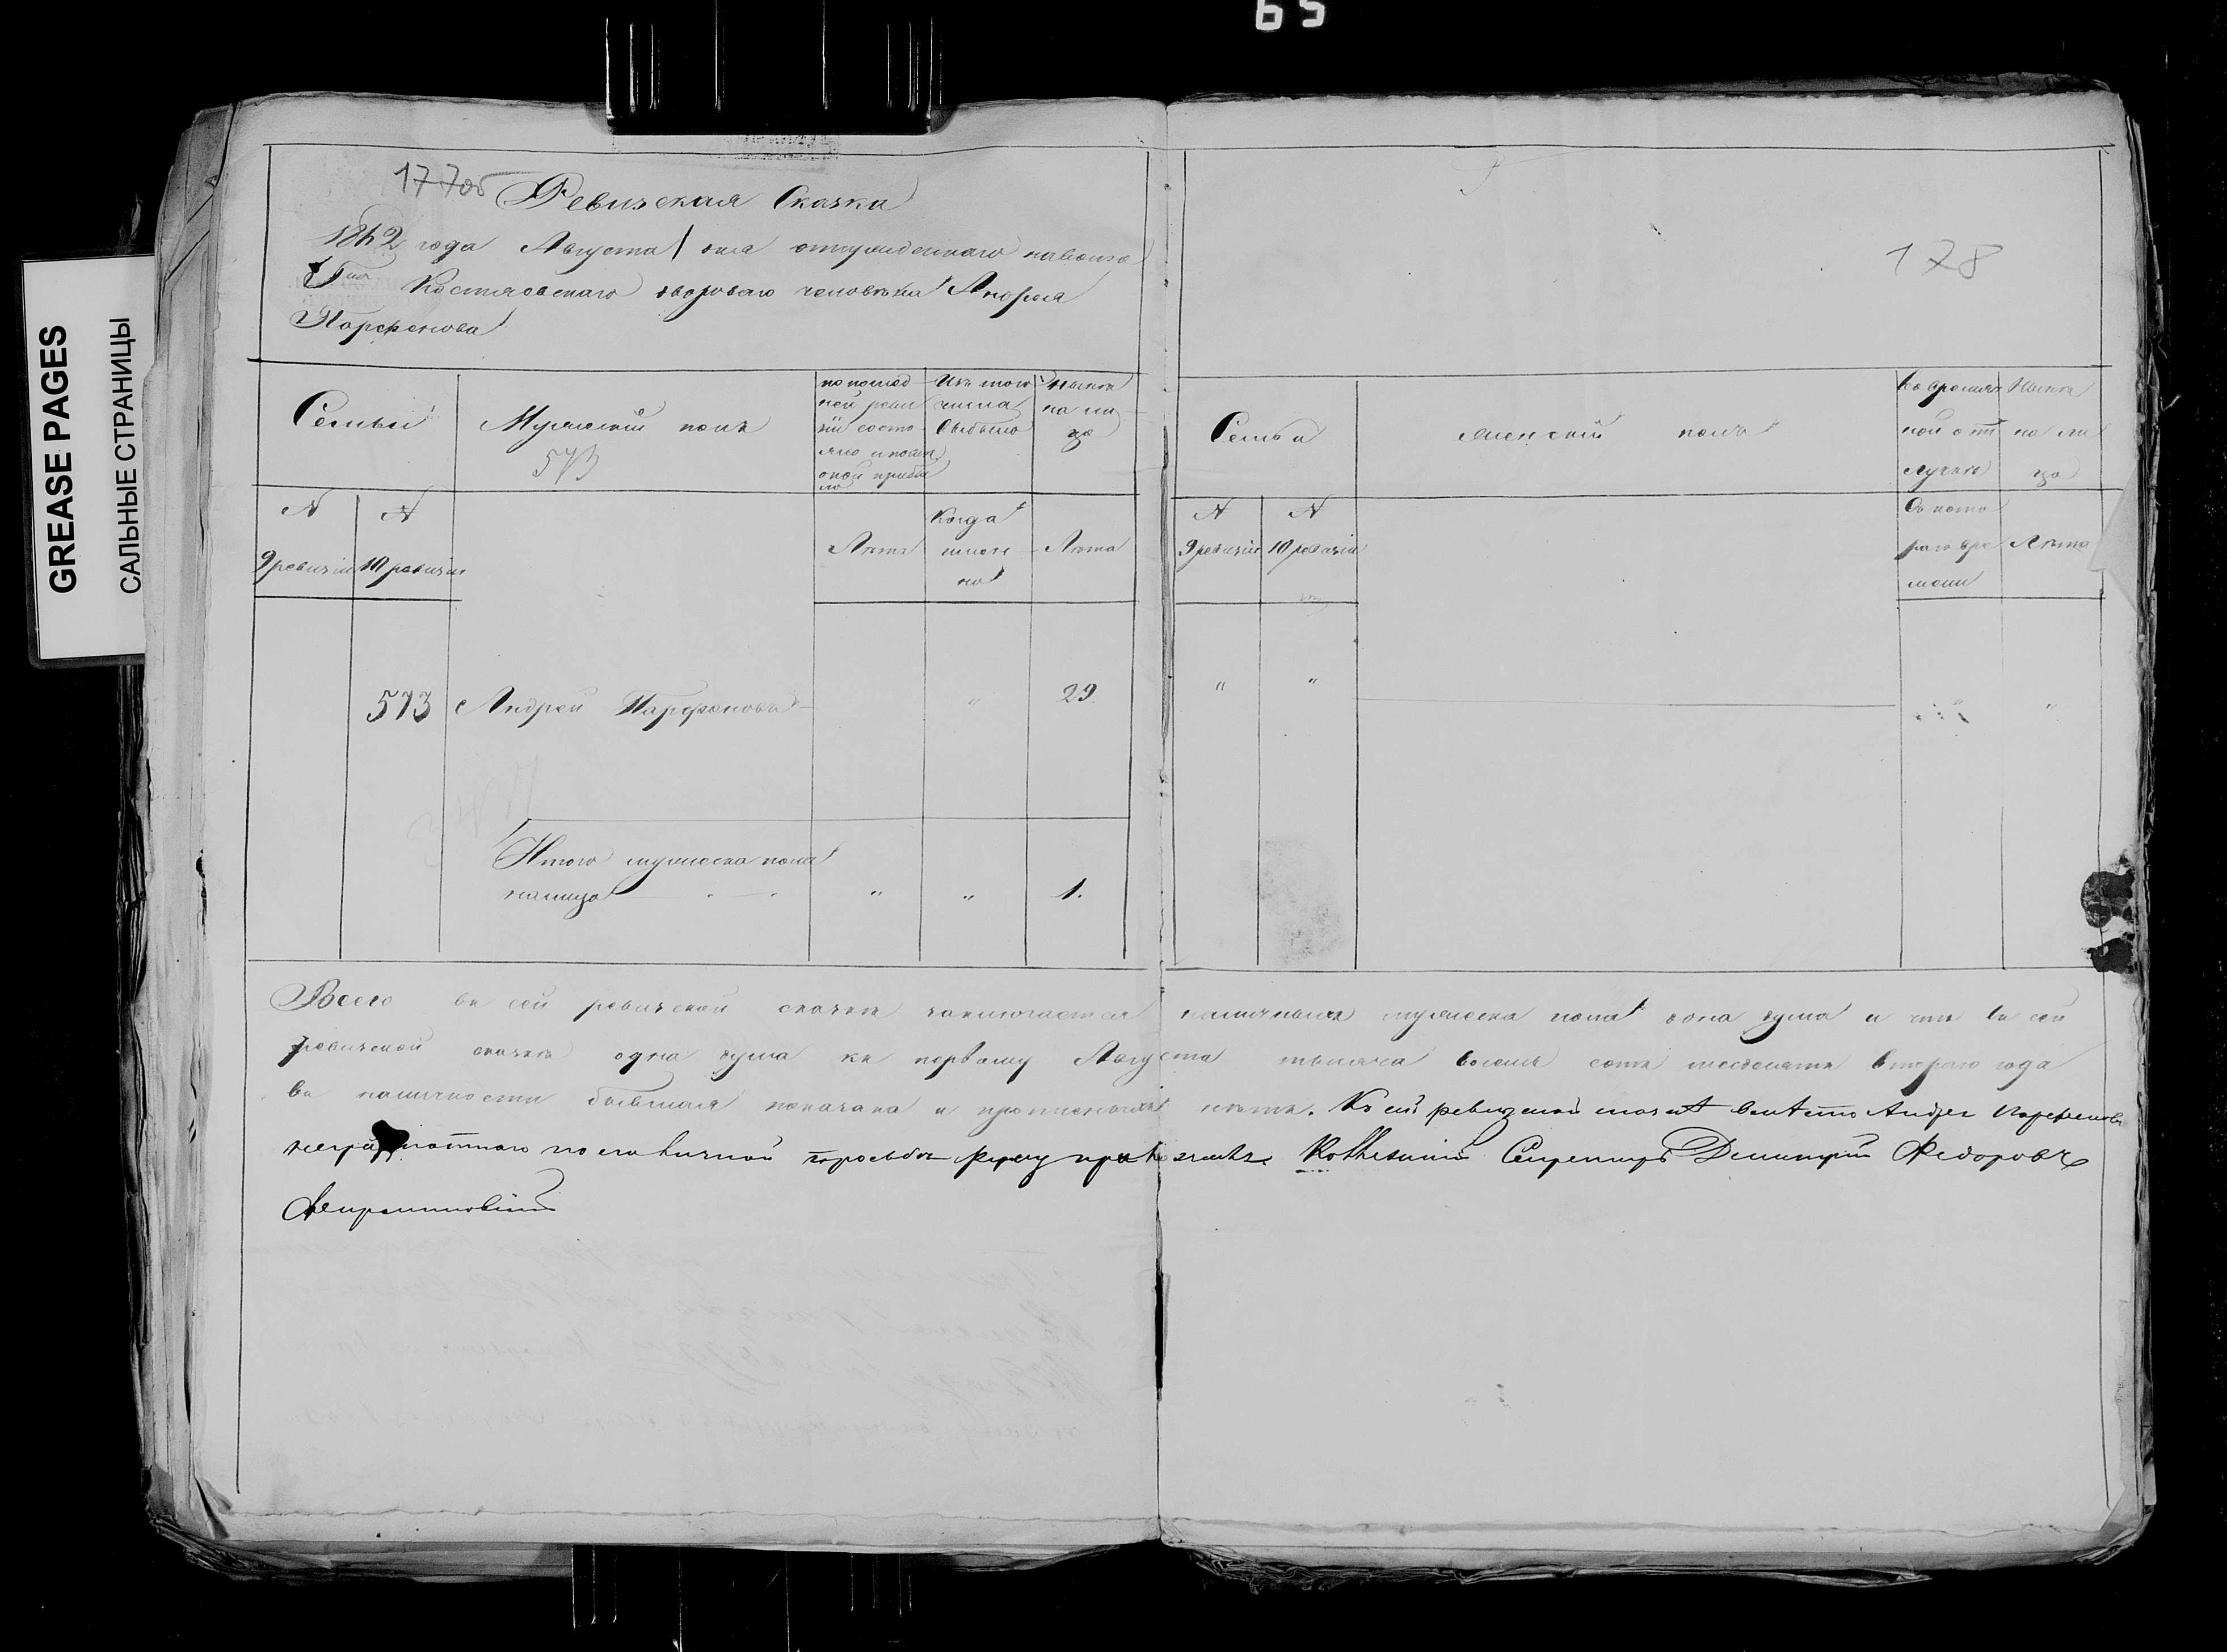 65
GREASE PAGES
САЛЬНЫЕ СТРАНИЦЫ
177об
Ревизская Сказка
1862 года Августа 1 дня отпущеннаго на волю
Костяовскаго двороваго человѣка Андрея
Парфенова
Семьи
Мужеский полъ
573
по послед
ней реви
зіи состо
яло и посли
оной прибы
ло
Изъ того
числа
выбыло
Нынѣ
на ли
цо
N
9 ревизіи
N
10 ревизіи
Лѣта
Когда
имен
но
Лѣта
573 Андрей Парфеновъ " 29
Итого мужеска пола
налицо " " 1.
178
Семьи
Женский полъ
во времян
ной отт
лучкѣ
Нынѣ
на ли
цо
N
9 ревизіи
N
10 ревизіи
Съ кото
раго вре
мени
Лѣта
" " " "
Всего въ сей ревизской сказкѣ заключается наличныхъ мужеска пола одна душа и что въ сей
ревизской сказкѣ одна душа къ первому Августа тысяча восемь сотъ шесдесятъ втораго года
въ наличности бывшая показана и прописныхъ нѣтъ. Къ сей ревизской сказкѣ вместо Андрея Парфенова
неграмотнаго по его личной прозьбѣ руку приложилъ Секретарь Димитрій Федоровъ